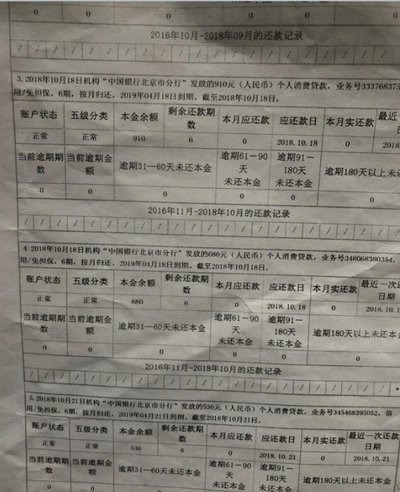 2016年10月-2018年09月的还款记录
/ / / / / / / / / / / / / / / / / / / / / / / /
3.2018年10月18日机构“中国银行北京市分行”发放的910元（人民币）个人消费贷款，业务号
用/免担保，6期，按月归还，2019年04月18日到期。截至2018年10月18日，
账户状态 五级分类 本金余额 剩余还款期数 本月应还款 应还款日 本月实还款 最近一
正常 正常 910 6 0 2018.10.18 0 2018.
当前逾期期数 当前逾期金额 逾期31—60天未还本金 逾期61—90天未还本金 逾期91—180天未还本金 逾期180天以上未还
0 0 0 0 0
2016年11月-2018年10月的还款记录
/ / / / / / / / / / / / / / / / / / / / / / /
4.2018年10月18日机构“中国银行北京市分行”发放的680元（人民币）个人消费贷款，业务号348068380354，
用/免担保，6期，按月归还，2019年04月18日到期。截至2018年10月18日，
账户状态 五级分类 本金余额 剩余还款期数 本月应还款 应还款日 本月实还款 最近一次还款日期
正常 正常 680 6 0 2018.10.18 0 2018.10.18
当前逾期期数 当前逾期金额 逾期31—60天未还本金 逾期61—90天未还本金 逾期91—180天未还本金 逾期180天以上未还本
0 0 0 0 0 0
2016年11月-2018年10月的还款记录
/ / / / / / / / / / / / / / / / / / / / / / / *
5.2018年10月21日机构“中国银行北京市分行”发放的536元（人民币）个人消费贷款，业务号345468395052，信
用/免担保，6期，按月归还，2019年04月21日到期。截至2018年10月21日，
账户状态 五级分类 本金余额 剩余还款期数 本月应还款 应还款日 本月实还款 最近一次还款日期
正常 正常 536 6 0 2018.10.21 0 2018.10.21
当前逾期期数 当前逾期金额 逾期31—60天未还本金 逾期61—90天未还本金 逾期91—180天未还本金 逾期180天以上未还本金
0 0 0 0 0 0